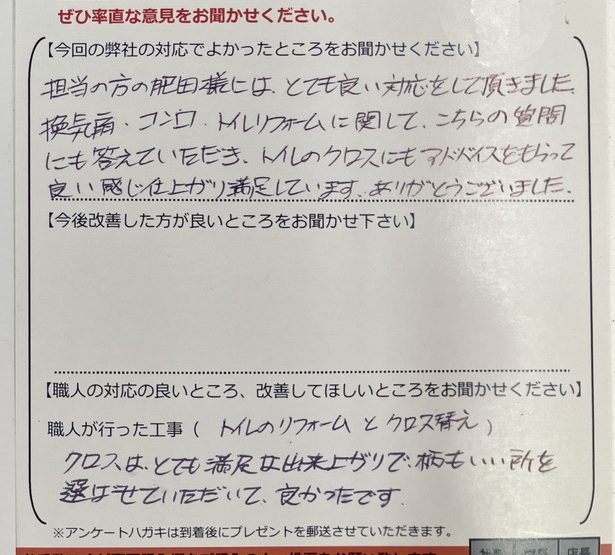 ぜひ率直な意見をお聞かせください。
【今回の弊社の対応でよかったところをお聞かせください】
担当の方の肥田様には、とても良い対応をして頂きました。
換気扇・コンロ・トイレリフォームに関して、こちらの質問
にも答えていただき、トイレのクロスにもアドバイスをもらって
良い感じ仕上がり満足しています。ありがとうございました。
【今後改善した方が良いところをお聞かせ下さい】
【職人の対応の良いところ、改善してほしいところをお聞かせください】
職人が行った工事（トイレのリフォームとクロス替え）
クロスは、とても満足な出来上がりで、柄もいい所を
選ばせていただいて、良かったです。
※アンケートハガキは到着後にプレゼントを郵送させていただきます。